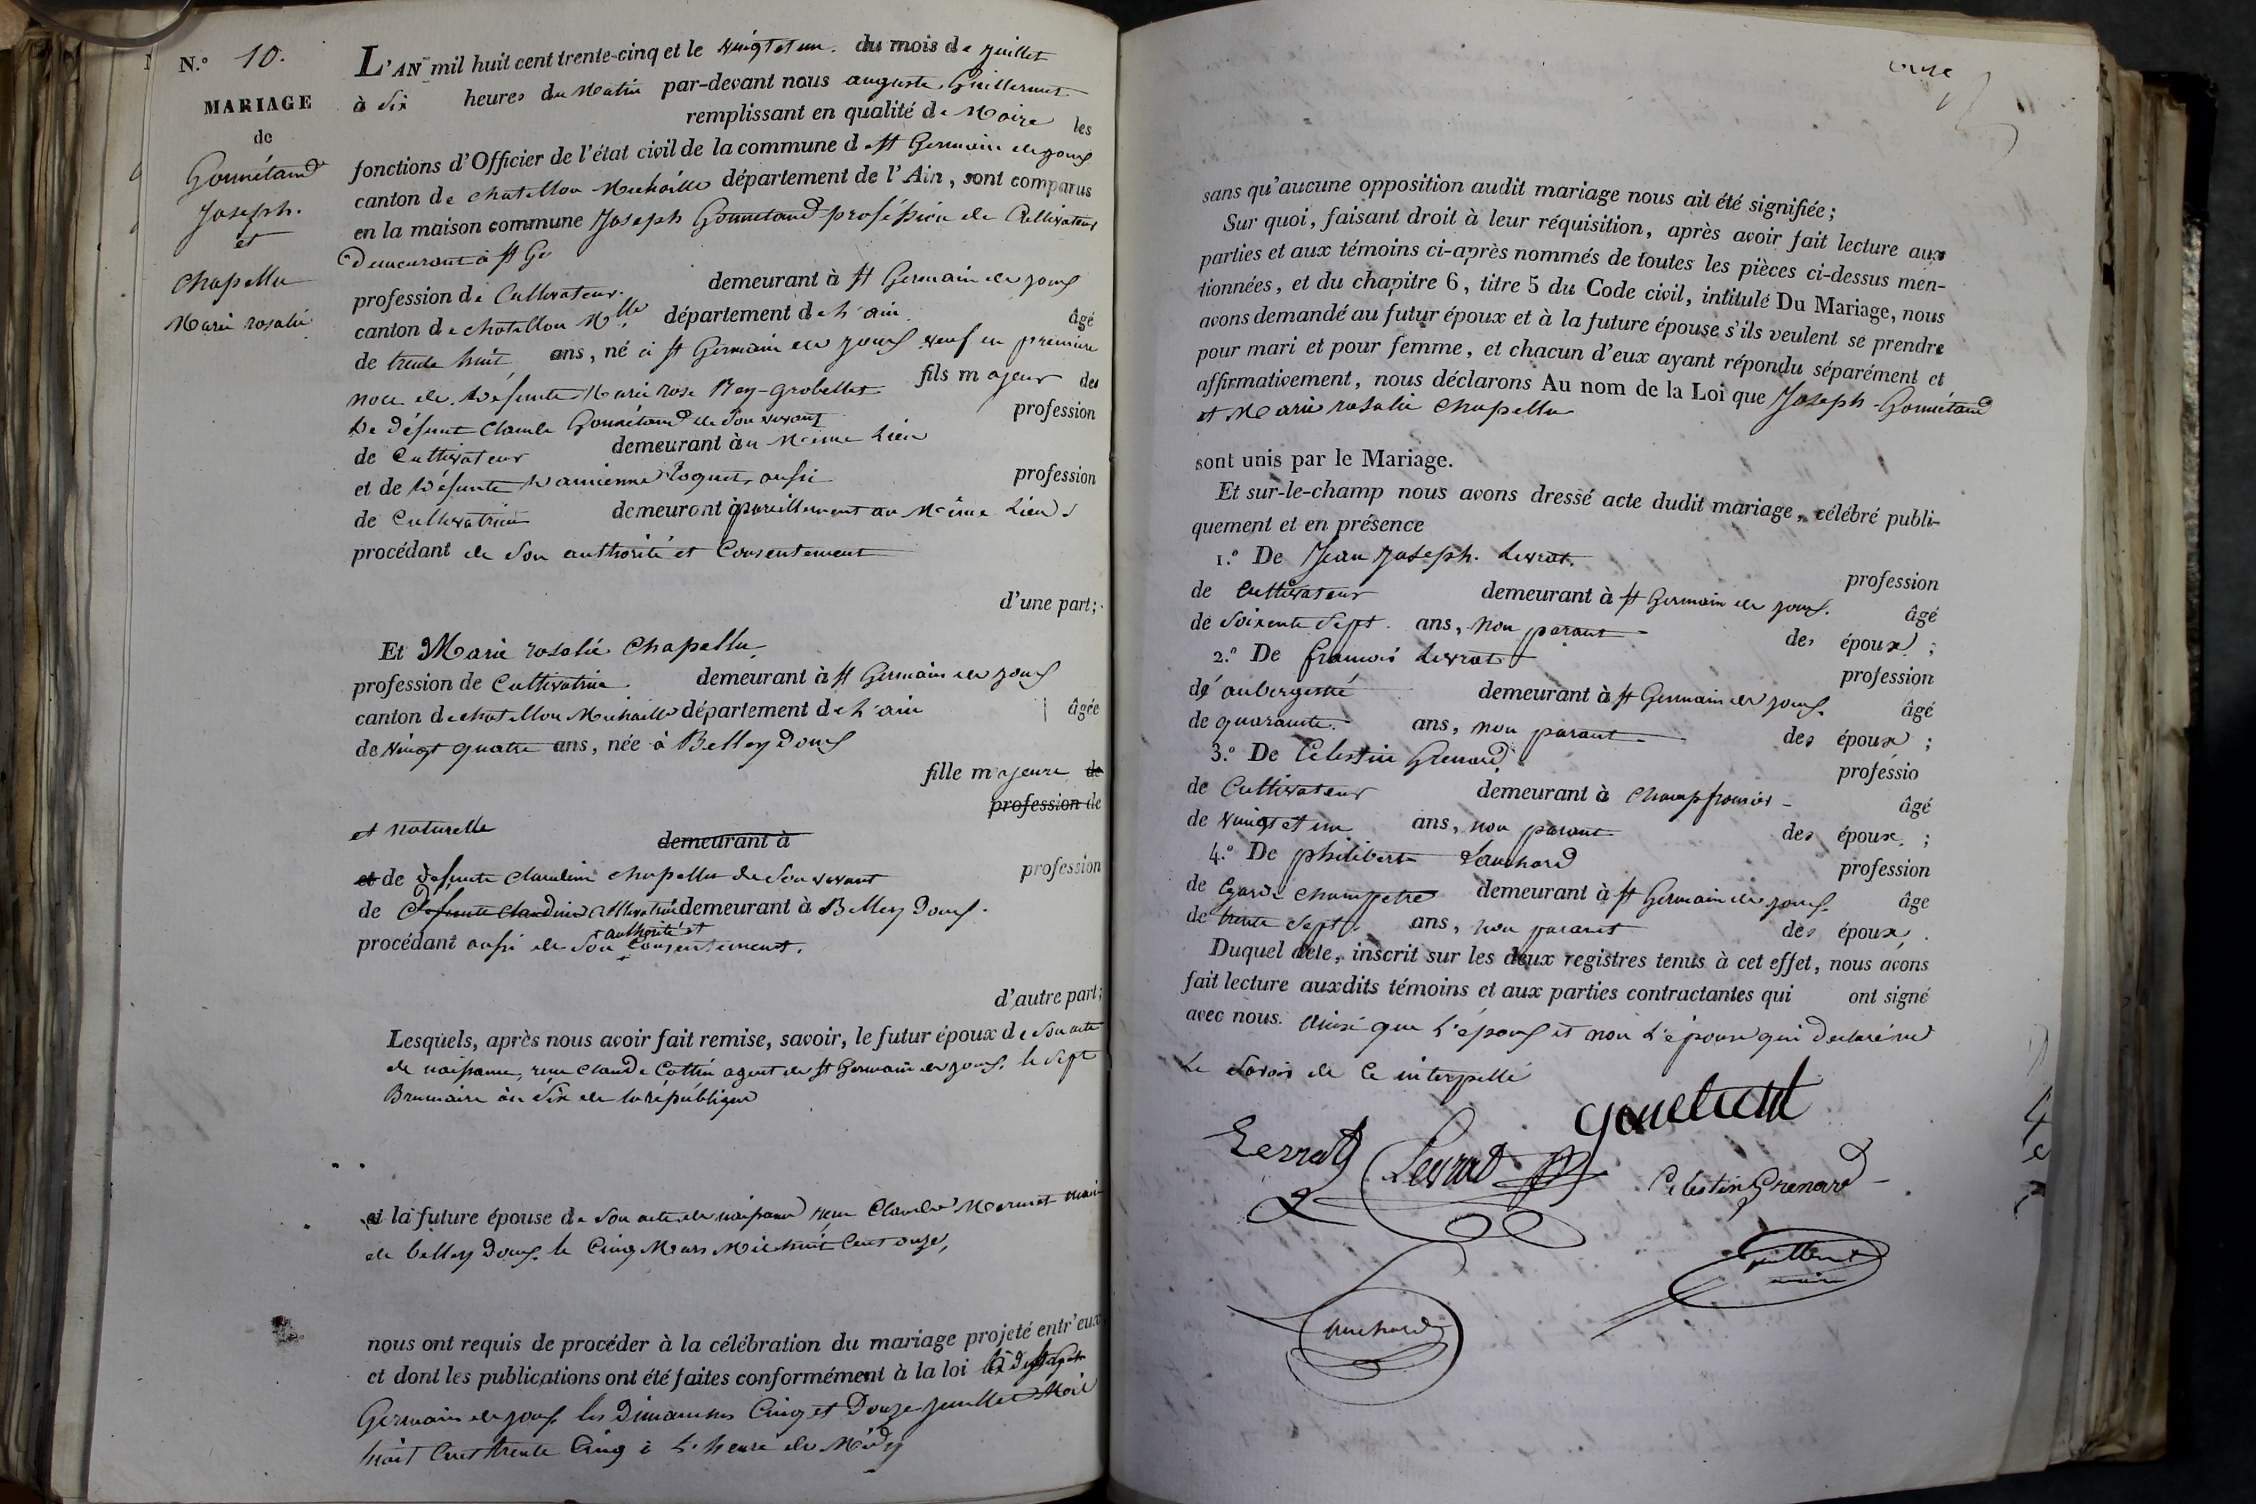 N.° 10.
MARIAGE
de
Gonnétand
Joseph.
et
Chapellu
Marie rosalie
L'AN mil huit cent trente-cinq et le vingt et un du mois de juillet
à dix heures du matin par-devant nous auguste Guillermet
remplissant en qualité de Maire les
fonctions d'Officier de l'état civil de la commune de st Germain de joux
canton de chatillon Michaille département de l'Ain, sont comparus
en la maison commune Joseph Gonnetand profession de Cultivateur
Demeurant à st Ge
profession de Cultivateur. demeurant à st Germain de joux
canton de chatillon Mlle département de L'ain âgé
de trente huit ans, né à st Germain de joux veuf en premiere
noce de défunte Marie rose Ray-Grobellet fils majeur des
De défunt Claude Gonnétand de son vivant profession
de Cultivateur demeurant au même Lieu
et de défunte Damienne Poquet, aussi profession
de Cultivatrice demeurant à pareillement au même Lieu
procédant de son authorité et Consentement
d'une part;
Et Marie rosalie Chapellu
profession de Cultivatrice demeurant à st Germain de joux
canton de chatillon Michaille département de L'ain âgée
de vingt quatre ans, née à Belley Doux
fille majeure de
profession de
et naturelle
demeurant à
et de défunte Claudine Chapellu de son vivant profession
de Défunte Claudine Cultivatrice demeurant à Belley Doux.
authorité et
procédant aussi de son Consentement.
d'autre part;
Lesquels, après nous avoir fait remise, savoir, le futur époux de son acte
de naissance, reçu Claude Cottin agent de st Germain de joux, le sept
Brumaire an Six de la république
et la future épouse de son acte de naissance reçu Claude Mermet maire
de belley Doux le Cinq Mars Mil huit Cent onze,
nous ont requis de procéder à la célébration du mariage projeté entr'eux
et dont les publications ont été faites conformément à la loi
Germain de joux les Dimanches Cinq et Douze juillet Mil
huit Cent trente Cinq à L'heure de Midy
onze
sans qu'aucune opposition audit mariage nous ait été signifiée;
Sur quoi, faisant droit à leur réquisition, après avoir fait lecture aux
parties et aux témoins ci-après nommés de toutes les pièces ci-dessus men-
tionnées, et du chapitre 6, titre 5 du Code civil, intitulé Du Mariage, nous
avons demandé au futur époux et à la future épouse s'ils veulent se prendre
pour mari et pour femme, et chacun d'eux ayant répondu séparément et
affirmativement, nous déclarons Au nom de la Loi que Joseph Gonnétand
et Marie rosalie Chapellu
sont unis par le Mariage.
Et sur-le-champ nous avons dressé acte dudit mariage, célébré publi-
quement et en présence
1.° De Jean Joseph. Levrat. profession
de Cultivateur demeurant à st Germain de joux. âgé
de soixente Sept. ans, non parant des époux;
2.° De francois Levrat profession
d'aubergesté demeurant à st Germain de joux. âgé
de quarante. ans, non parant des époux;
3.° De Celestin Grenard professio
de Cultivateur demeurant à Champfromier âgé
de vingt et un ans, non parant des époux;
4.° De philibert Lanchard profession
de Garde Champetre demeurant à st Germain de joux. âge
de trente Sept. ans, non parant des époux.
Duquel acte, inscrit sur les deux registres tenus à cet effet, nous avons
fait lecture auxdits témoins et aux parties contractantes qui ont signé
avec nous. Ainsi que L'époux et non L'épouse qui declaré ne
Le Savoir de Ce interpellé
Gonetent
Levrat
Levrat
Celestin Grenard
Guillermet
maire